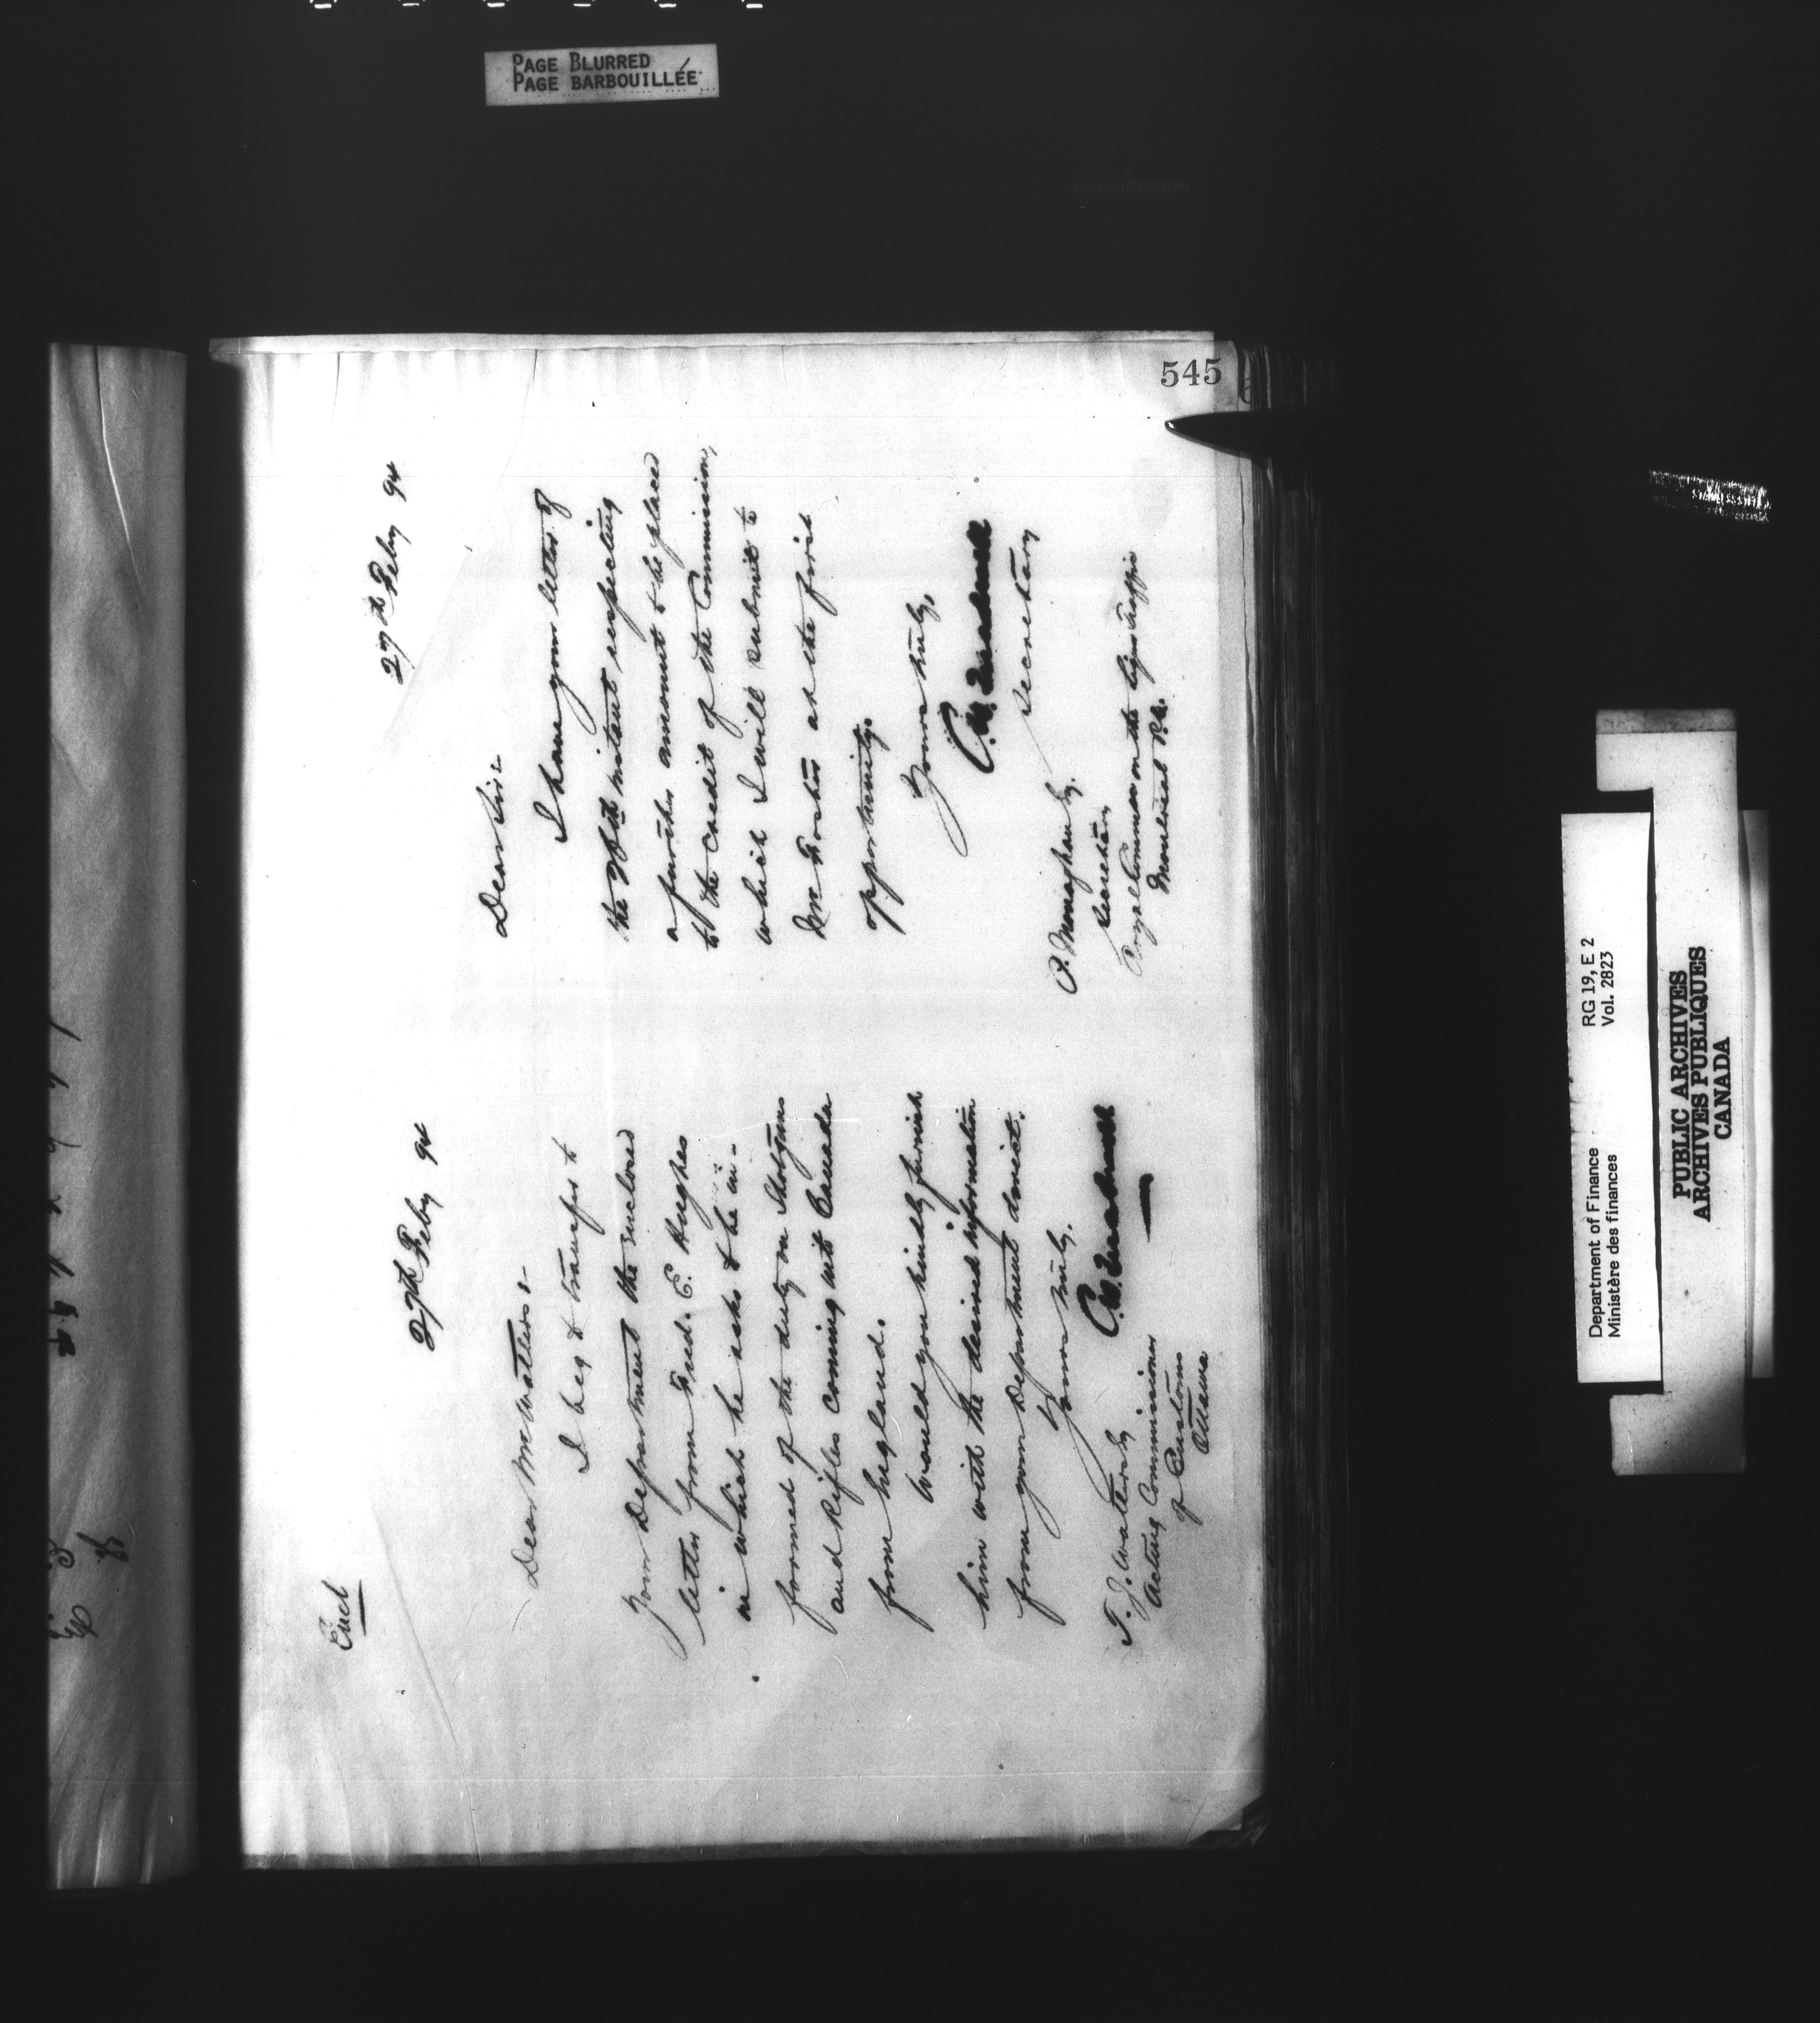 PAGE BLURRED
PAGE BARBOUILLÉE
545
Encl
27th Feby 94
Dear Mr Watters:-
I beg to transfer to
your Department the enclosed
letter from Fred. E. Hughes
in which he asks to be in-
formed of the duty on Shotguns
and Rifles coming into Canada
from England.
Would you kindly furnish
him with the desired information
from your Department direct.
Yours truly,
T. J. Watters Esq
Acting Commissioner
of Customs
Ottawa
27th Feby 94
Dear Sir:-
I have your letter of
the 26th instant respecting
a further amount to be placed
to the credit of the Commission,
which I will submit to
Mr Foster at the first
opportunity.
Yours truly,
Secretary
P. Monaghan Esq.
Secretary
Royal Commission on the Liquor Traffic
Montreal P.Q.
Department of Finance RG 19, E 2
Ministère des finances Vol. 2823
PUBLIC ARCHIVES
ARCHIVES PUBLIQUES
CANADA